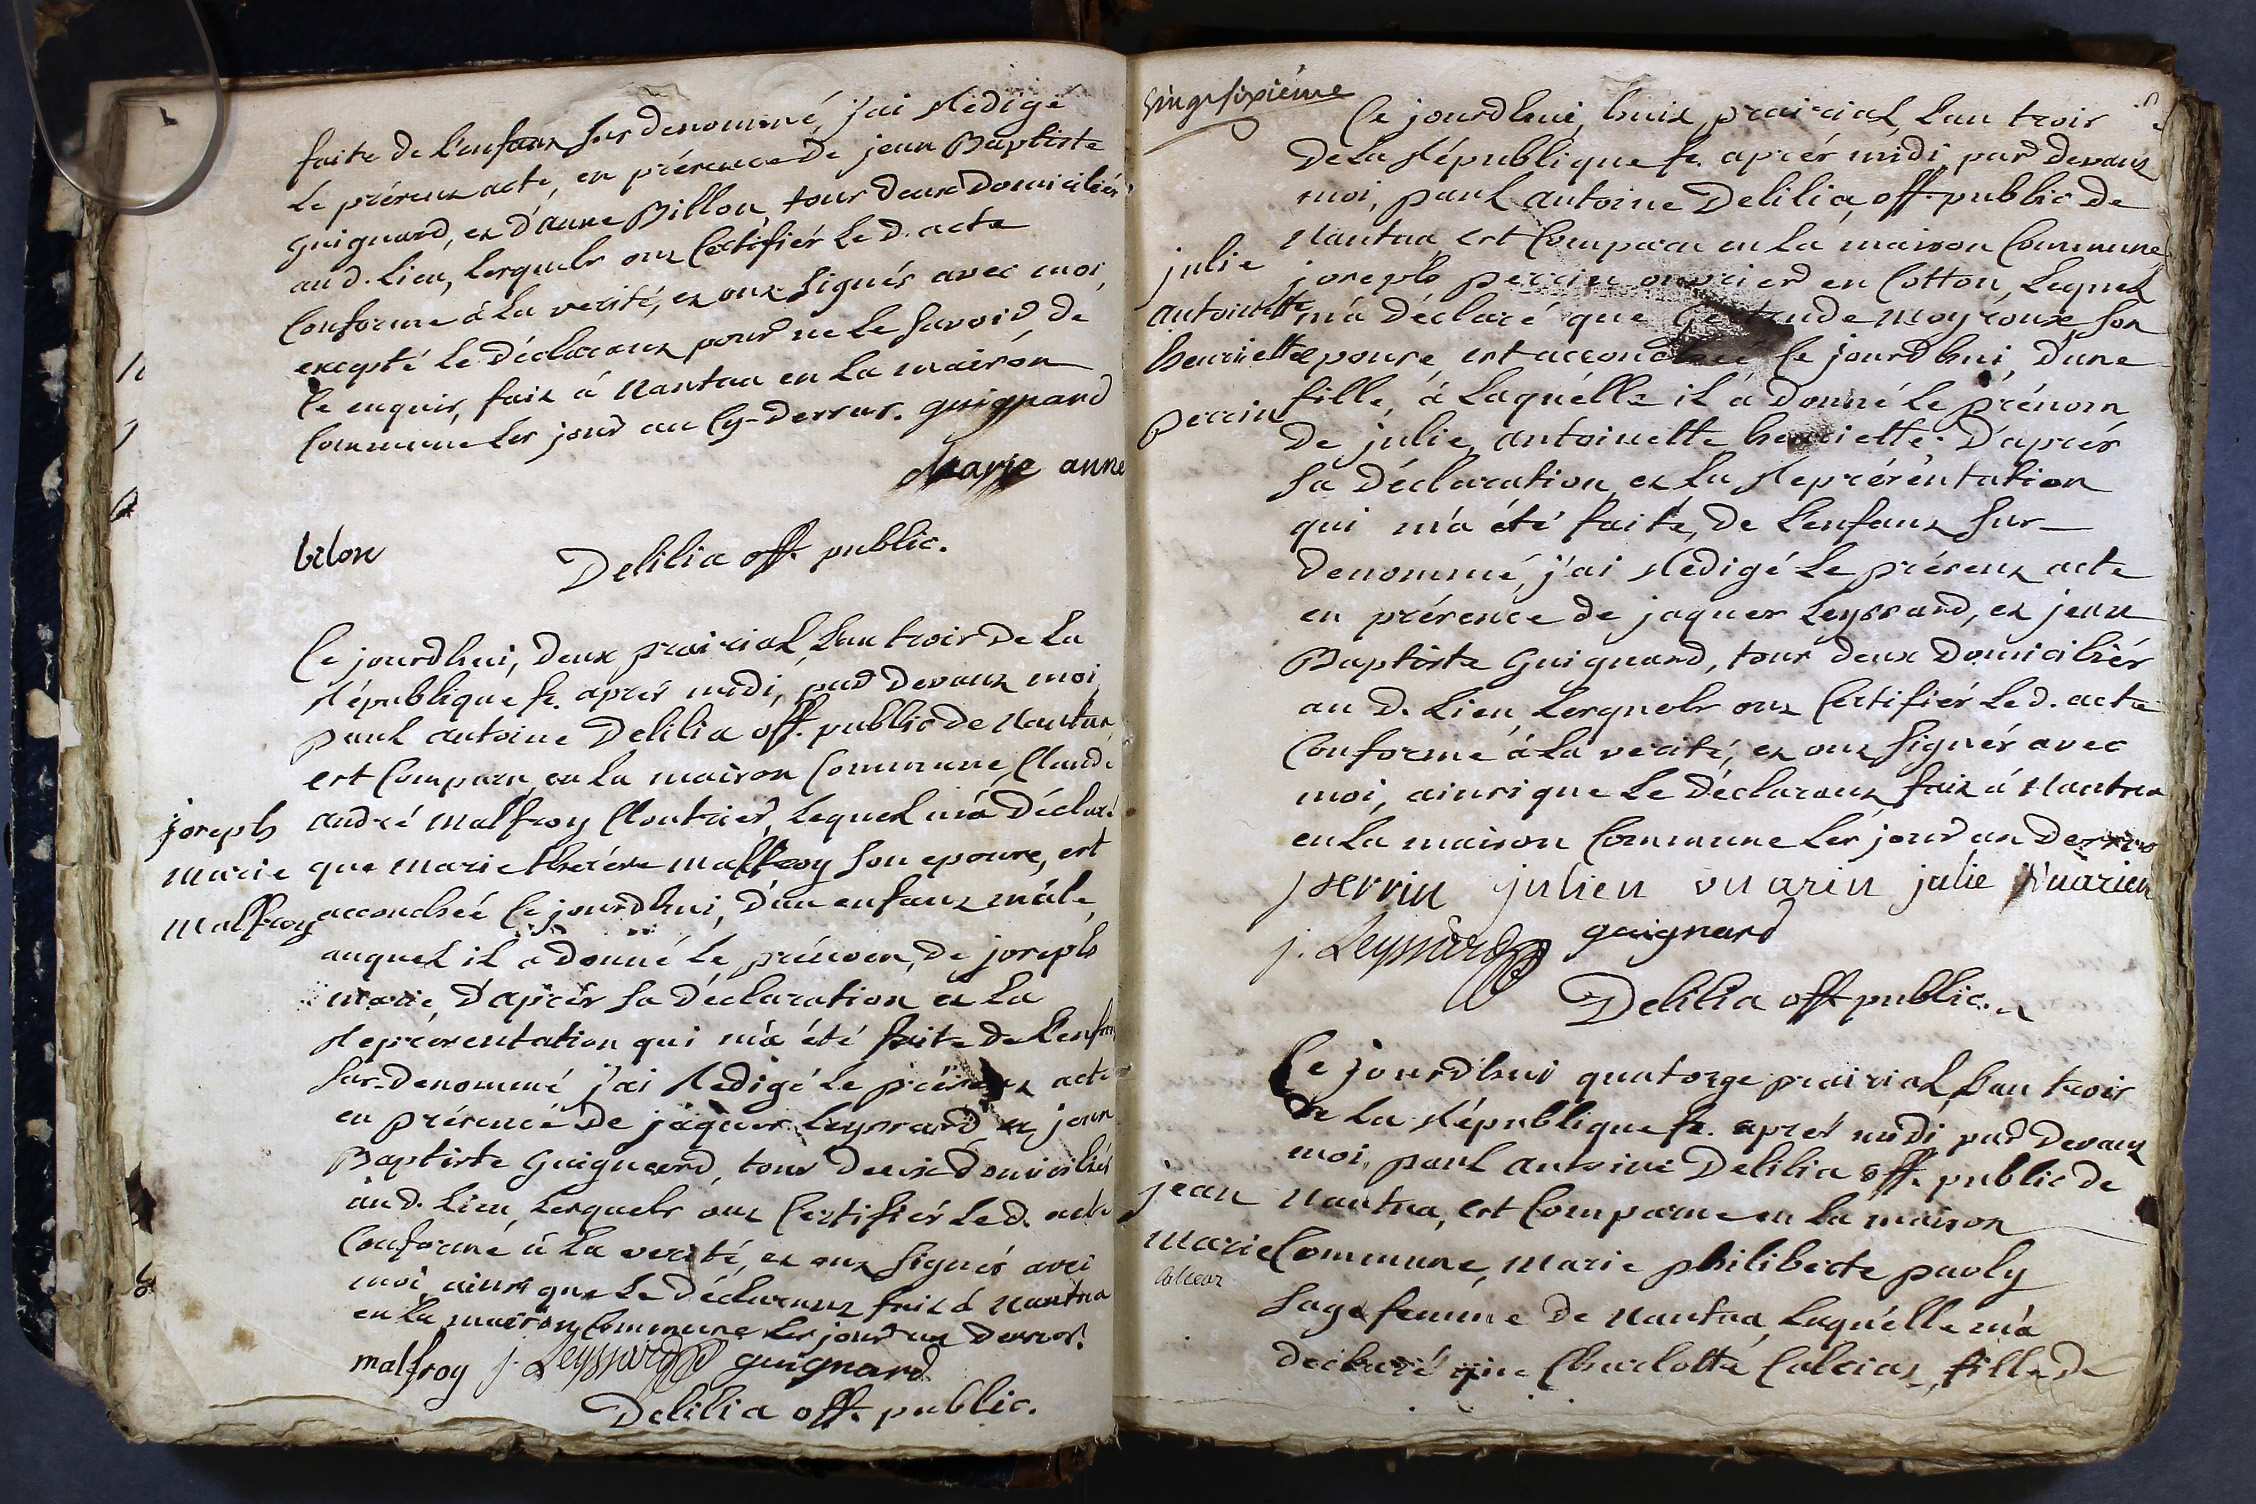 faite de L'enfant sus denommé, j'ai Rédigé
Le présent acte, en présence de jean Baptiste
guignard, et d'anne Billon, tous deux Domiciliés
aud. Lieu, Lesquels ont Certifiés Le d. acte
Conforme à La verité, et ont signés avec moi,
excepté Le déclarant pour ne Le savoir de
Ce enquis, fait à Nantua en La maison
Commune Les jour an Cy-dessus. guignard
Marie anne
bilon Delilia off. public.
Ce jourdhui, deux prairial, L'an trois de La
République fe. après midi, par devant moi
paul antoine Delilia off. public de Nantua,
est Comparu, en La maison Commune, Claude
andré Malfroy Cloutrier, Lequel m'a déclaré
que marie therése malfroy son epouse, est
accouchée Ce jourdhui, d'un enfant mâle,
auquel il a donné Le prénom, de joseph
marie, d'après sa déclaration et La
Représentation qui m'a été faite de L'enfant
sus-denommé j'ai Redigé Le présent acte
en présence de jaques Leyssard et jean
Baptiste Guignard, tous deux domiciliés
aud. Lieu, Lesquels ont Certifiés Le d. acte
Conforme à La verité, et ont signés avec
moi ainsi que Le déclarant fait à Nantua
en La maison Commune Les jour an dessus.
malfroy j. Leyssard guignard
Delilia off. public.
joseph
marie
Malfroy
Vingt sixiéme
Ce jourdhui, huit prairial, L'an trois
de La République fe. après midi, par devant
moi, paul antoine Delilia, off. public de
Nantua, est Comparu en La maison Commune
joseph perrin ouvrier en Cotton, Lequel
m'a déclaré que moyroux son
epouse, est accouchée Ce jourdhui, d'une
fille, à Laquélle il a donné Le prénom
de julie, antoinette henriette. d'après
sa déclaration, et La Représentation
qui m'a été faite, de L'enfant sus-
denommé, j'ai Rédigé Le présent acte
en présence de jaques Leyssard, et jean
Baptiste Guignard, tous deux Domiciliés
au d. Lieu, Lesquels ont Certifiés Le d. acte
Conforme à La verité, et ont signés avec
moi, ainsi que Le déclarant fait à Nantua
en La maison Commune Les jour an dessus
perrin julien vuarin julie vuarien
j. Leyssard guignard
Delilia off public.
julie
antoinette
henriette
perrin
Ce jourd'hui quatorze prairial, L'an trois
de La République fe. après midi, par devant
moi, paul antoine Delilia off. public de
Nantua, est Comparue en La maison
Commune, marie philiberte pauly
sage femme de Nantua, Laquélle m'a
declaré que Charlotte Calciat, fille de
jean
marie